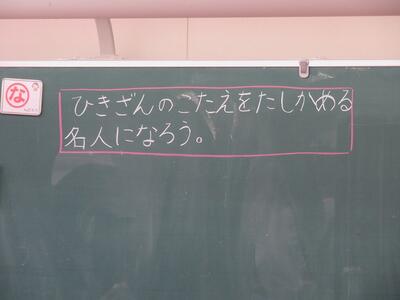 な
ひきざんのこたえをたしかめる
名人になろう。